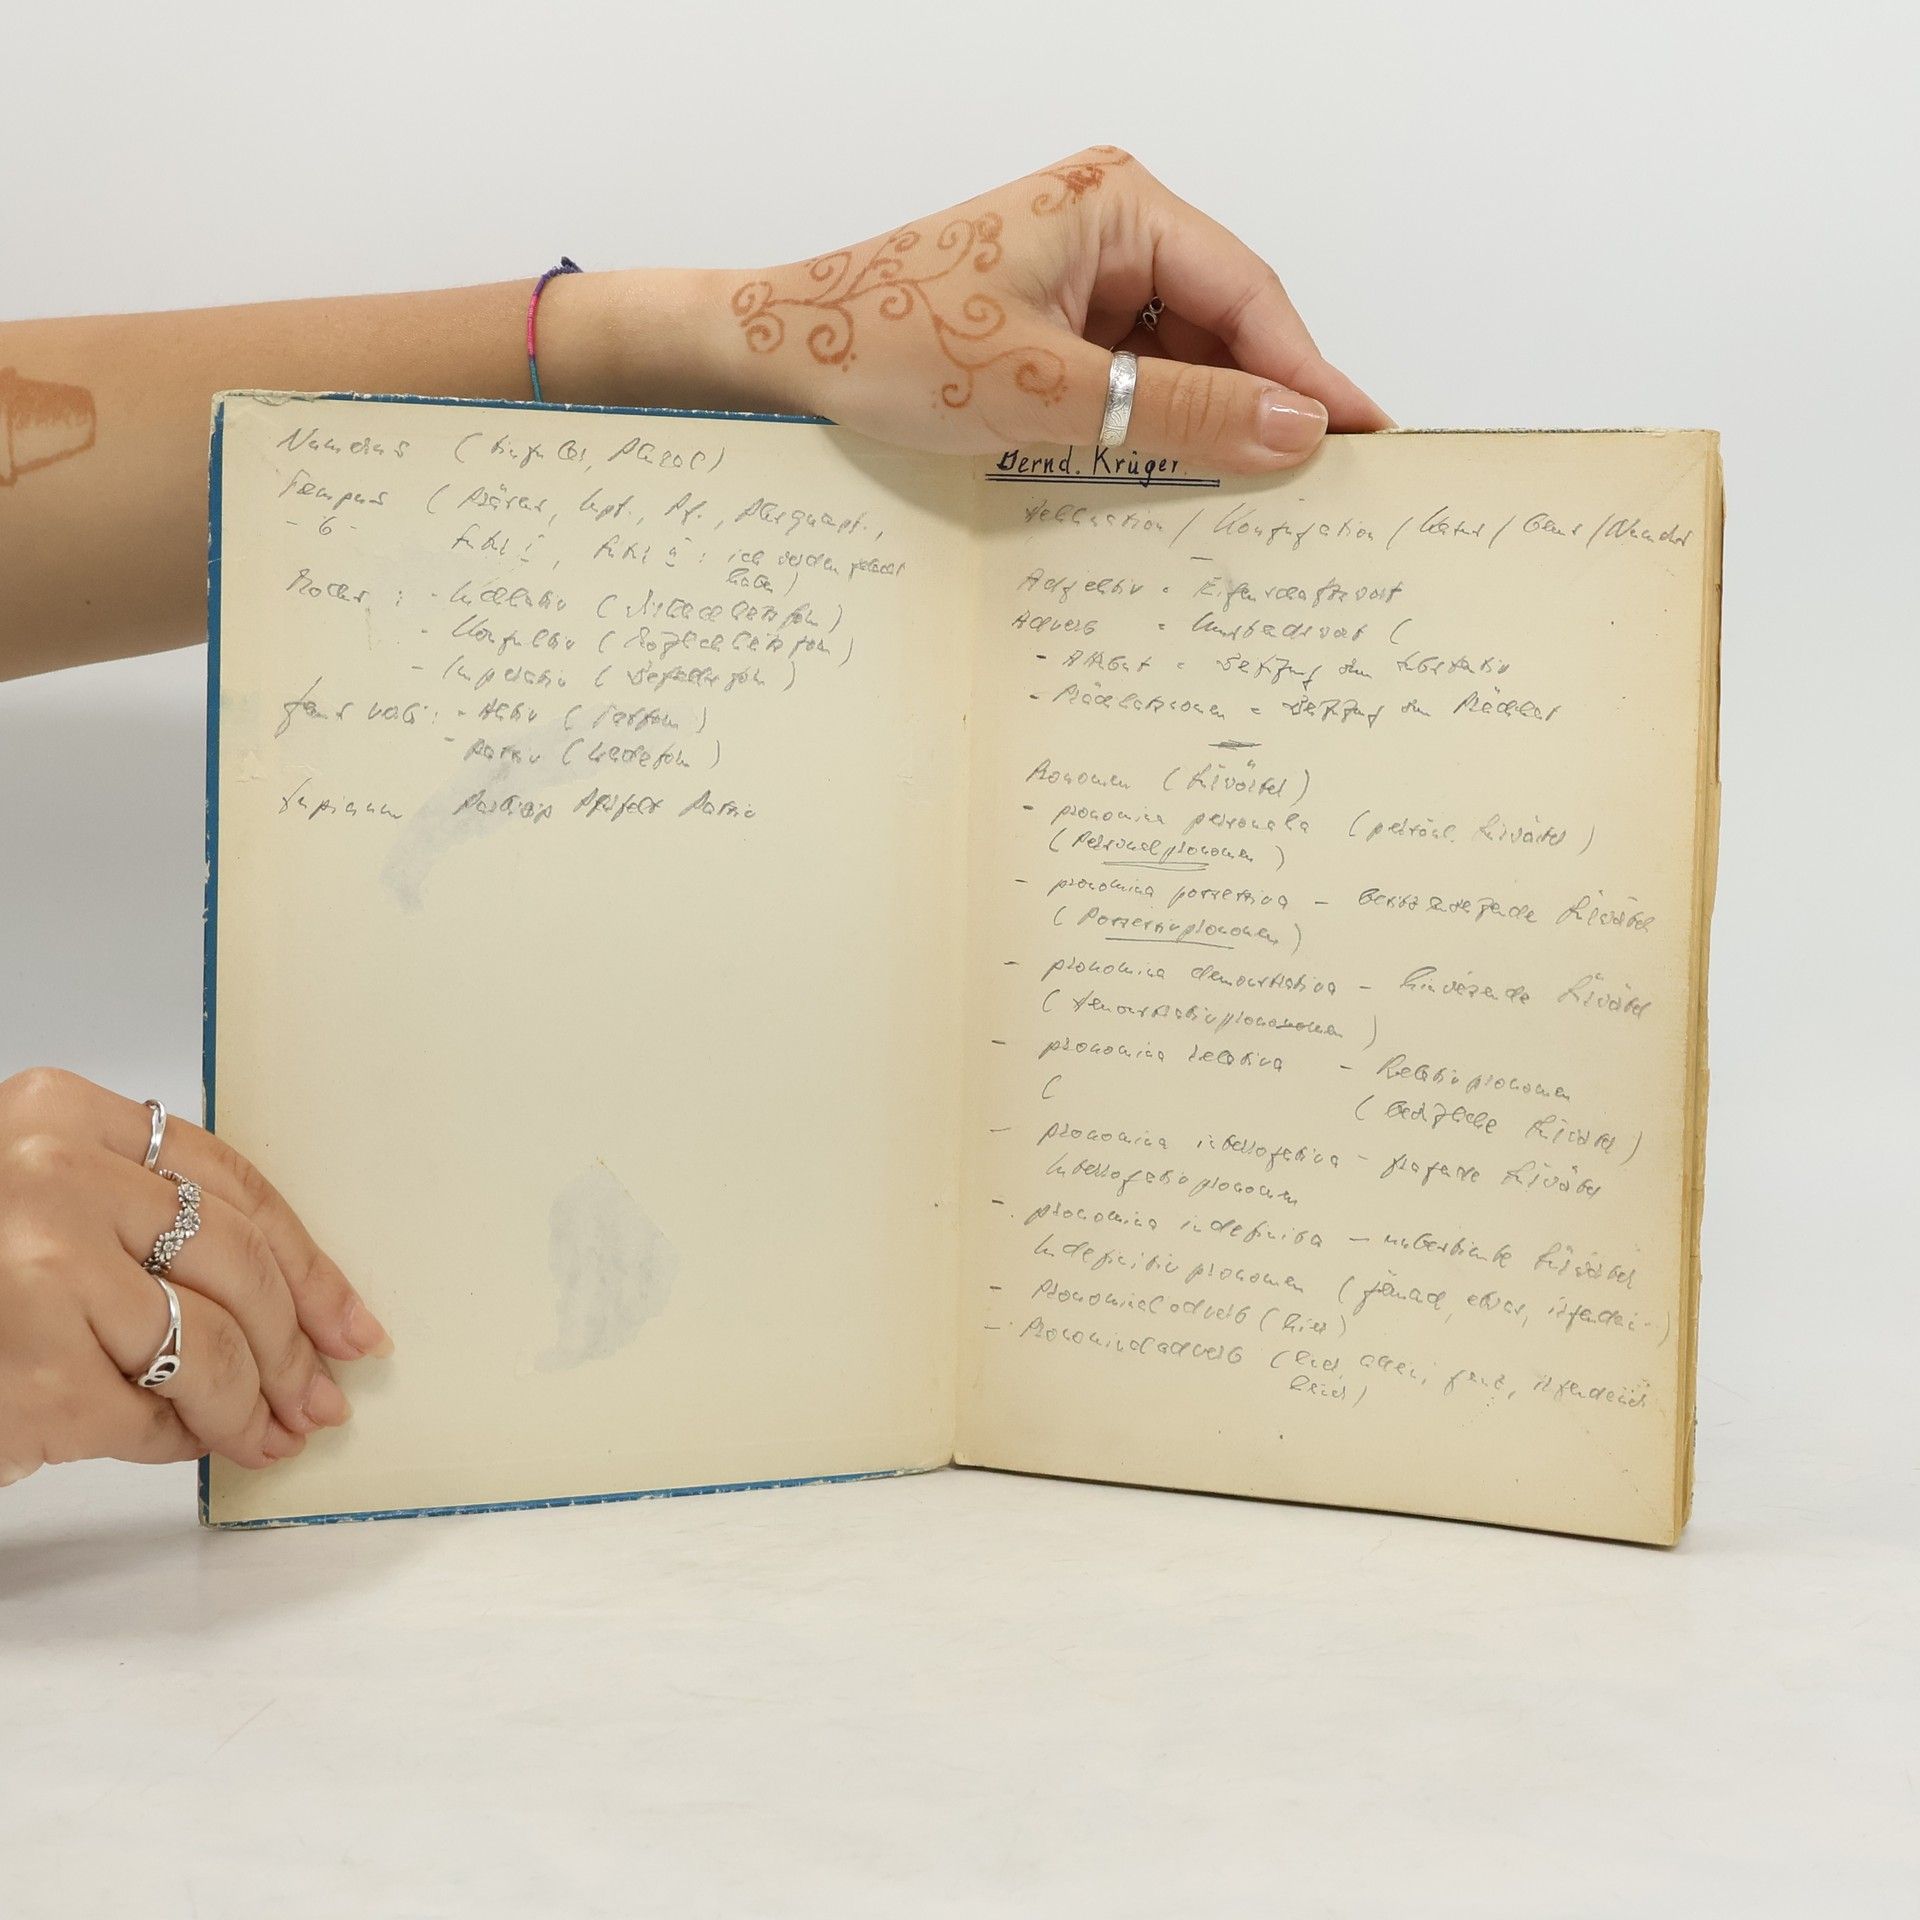 Numerus (Singular, Plural)
Tempus (Präsens, Impf., Pf., Plusquampf.,
- 6 - Futur I, Futur II: ich werden gelacht
haben)
Modus: - Indikativ (Wirklichkeitsform)
- Konjunktiv (Möglichkeitsform)
- Imperativ (Befehlsform)
Genus verbi: - Aktiv (Tatform)
- Passiv (Leideform)
Supinum Partizip Perfekt Passiv
Bernd. Krüger.
Deklination / Konjugation / Kasus / Genus / Numerus
Adjektiv = Eigenschaftswort
Adverb = Umstandswort (
- Attribut = Beifügung zum Substantiv
- Prädikatsnomen = Beifügung zum Prädikat
Pronomen (Fürwörter)
- pronomina personalia (persönl. Fürwörter)
(Personalpronomen)
- pronomina possessiva - besitzanzeigende Fürwörter
(Possessivpronomen)
- pronomina demonstrativa - hinweisende Fürwörter
(Demonstrativpronomen)
- pronomina relativa - Relativpronomen
( (bezügliche Fürwörter)
- pronomina interrogativa - fragende Fürwörter
Interrogativpronomen
- pronomina indefinita - unbestimmte Fürwörter
Indefinitivpronomen (jemand, etwas, irgendein..)
- Pronominaladverb (hier)
- Pronominaladverb (allein, ganz,